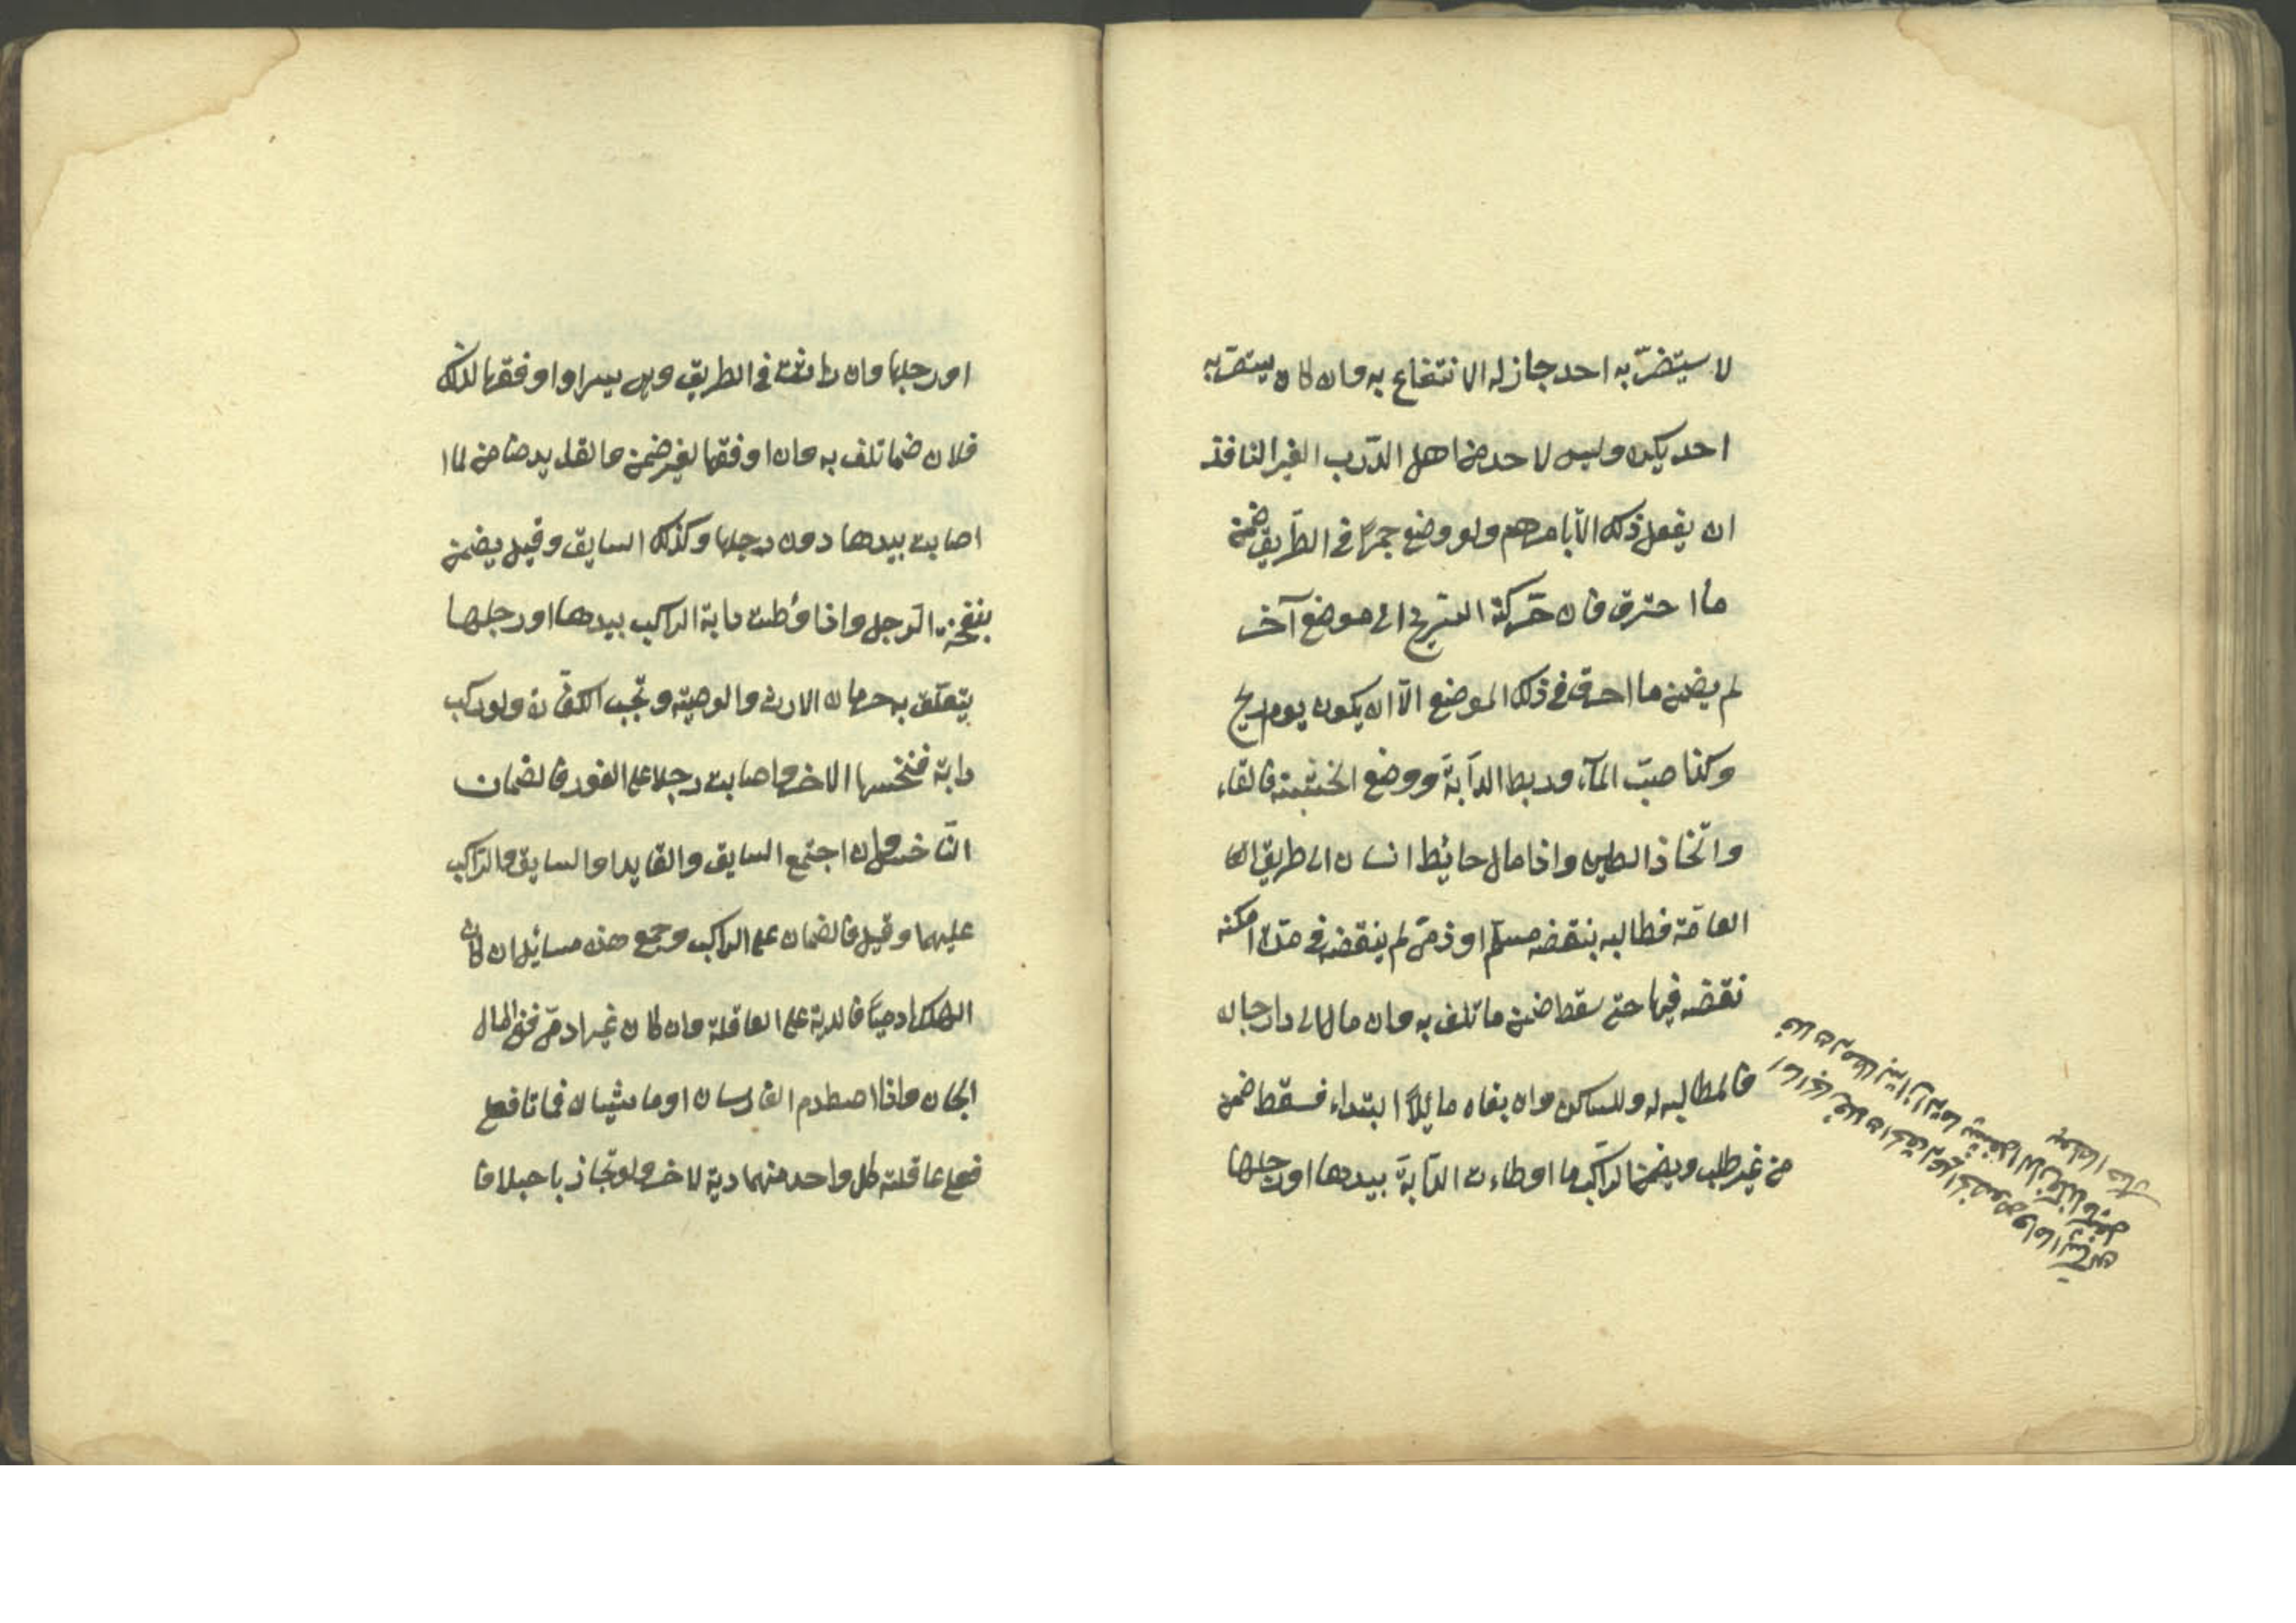 لا يستضرّ به احد جاز له الانتفاع به وان كان يستضرّ به
احد يكره وليس لاحد من اهل الدّرب الغير النافذ
ان يفعل ذلك الّا بامرهم ولو وضع جمرًا في الطّريق ضمن
ما احترق فان حرّكته الرّيح الى موضع آخر
لم يضمن ما احرق في ذلك الموضع الّا ان يكون يوم ريح
وكذا صبّ المآء وربط الدآبة ووضع الخشبة والقاء
واتّخاذ الطين واذا مال حائيط انسان الى طريق العا
العامّة فطالبه بنقضه مسلم او ذمّى لم ينقضه في مدّة امكنه
نقضه فيها حتى سقط ضمن ما تلف به وان مال الى دار جاره
فالمطالبه له وللساكن وان بناه مائلًا ابتداء فسقط ضمن
من غير طلب ويضمن الرّاكب ما اوطاءت الدّآبة بيدها او رجلها
او رجلها وان راثت في الطريق وهى يسير او اوقفها لذلك
فلا ضمان تلف به وان اوقفها لغيره ضمن والقايد ضامن لما
اصابت بيدها دون رجلها وكذلك السايق وقيل يضمن
بنفحة الرّجل واذا وُطئت دابة الراكب بيدها او رجلها
يتعلّق به حرمان الارث والوصية وتجب الكفّارة ولو ركب
دابة فنخسها الاخر واصابت رجلا على الفور فالضمان
النّاخس وان اجتمع السايق والقايد او السايق والرّاكب
عليهما وقيل فالضمان على الراكب وجمع هذه مسائيل ان كان
الهالك ادميًّا فالدية على العاقلة وان كان غير ادمىّ ففى المال
الجان واذا اصطدم الفارسان او ماشيان فماتا فعلى
فعلى عاقلة كل واحد منهما دية لاخر ولو تجاذبا حبلا فا